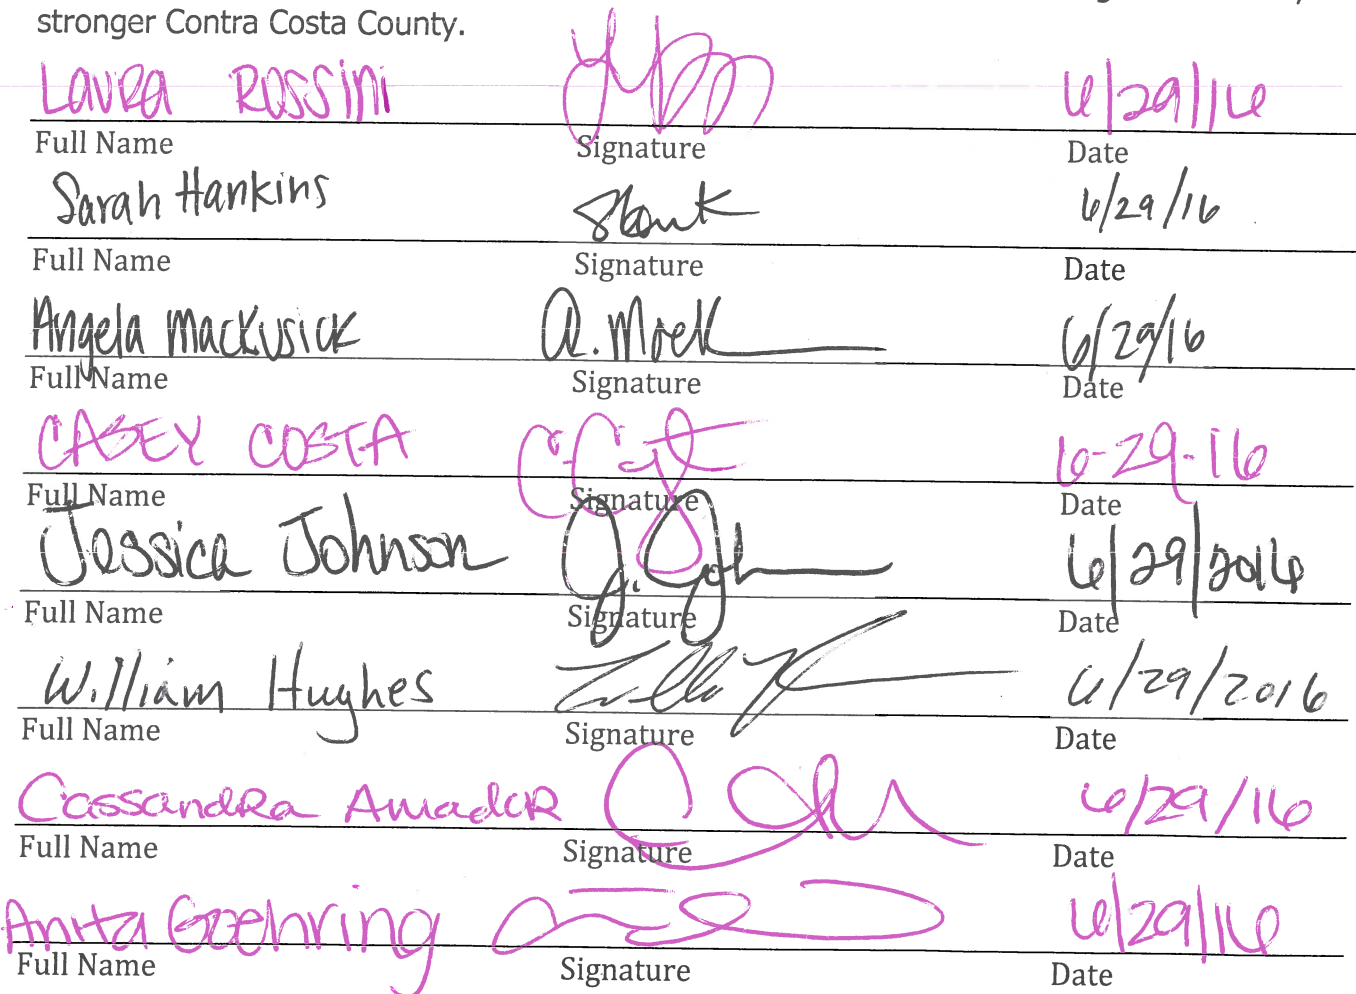 stronger Contra Costa County.
LAURA ROSSINI 6/29/16
Full Name Signature Date
Sarah Hankins 6/29/16
Full Name Signature Date
Angela Mackusick A. Mack 6/29/16
Full Name Signature Date
CASEY COSTA 6-29-16
Full Name Signature Date
Jessica Johnson J. Joh 6/29/2016
Full Name Signature Date
William Hughes 6/29/2016
Full Name Signature Date
Cassandra Amador 6/29/16
Full Name Signature Date
Anita Goehring 6/29/16
Full Name Signature Date